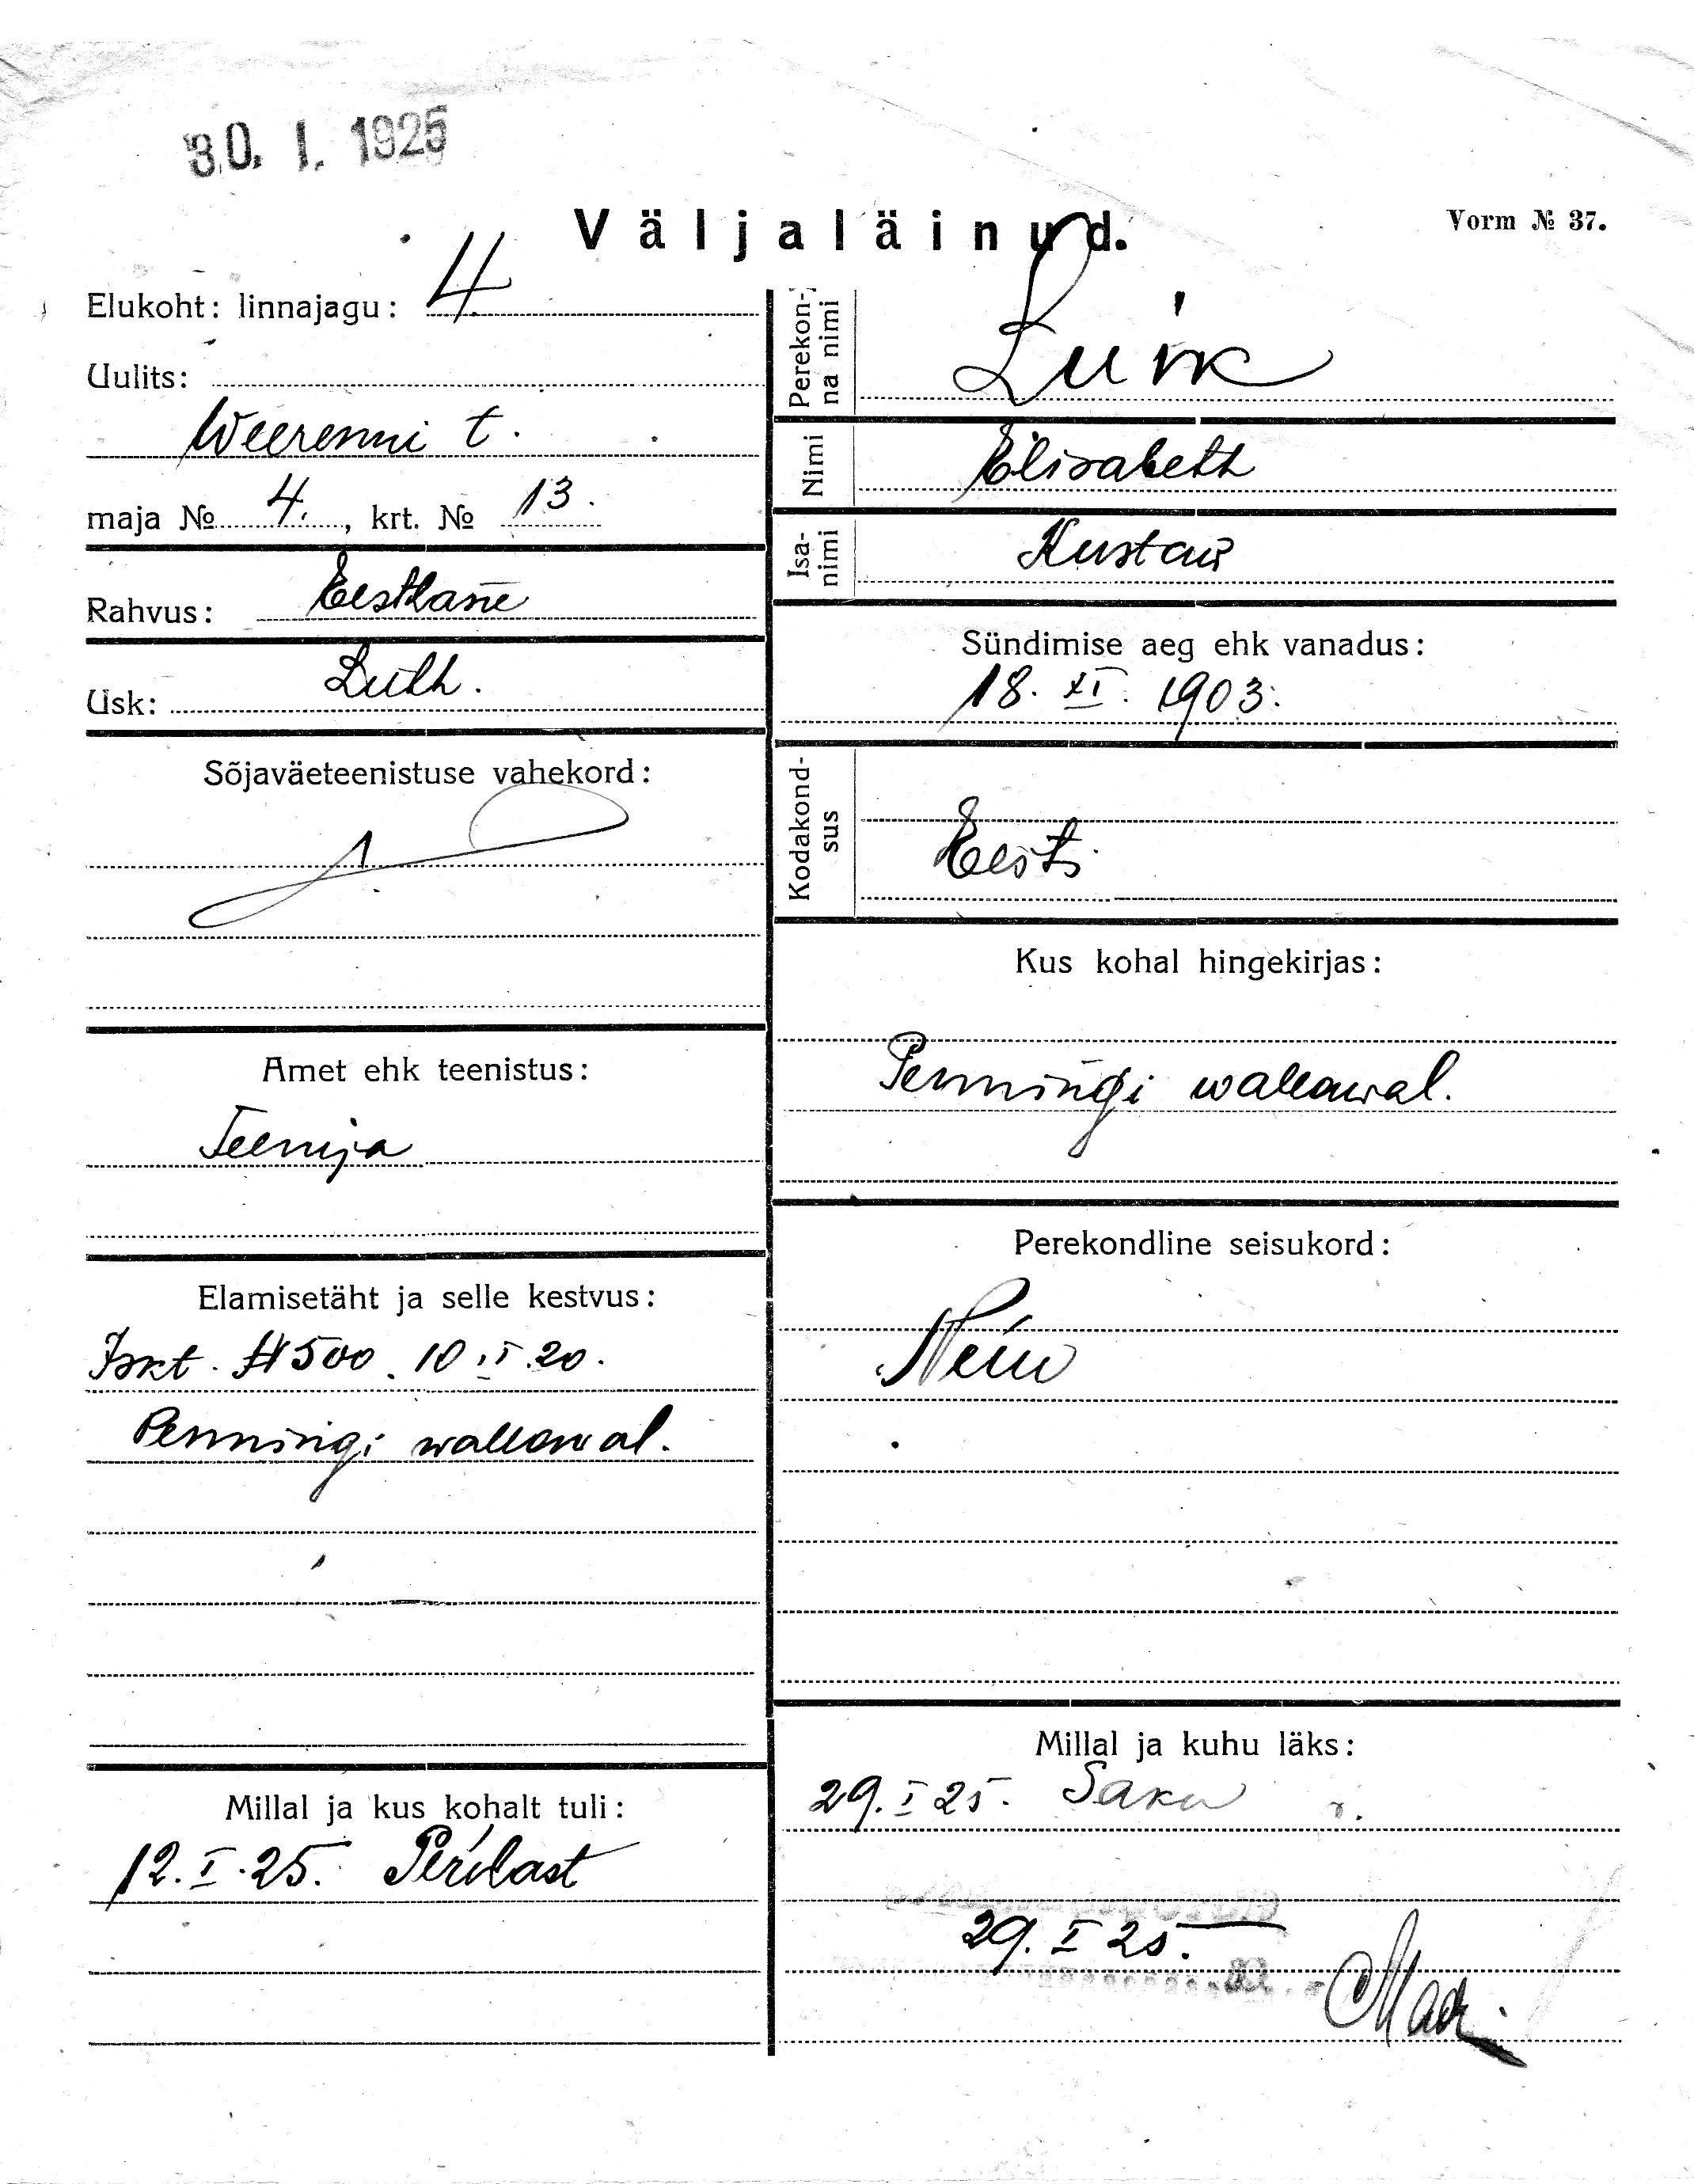 30. I. 1925
Väljaläinud.
Vorm № 37.
Elukoht: linnajagu: 4.
Uulits:
Weerenni t.
maja № 4., krt. № 13.
Rahvus: Eestlane
Usk: Luth.
Sõjaväeteenistuse vahekord:
Amet ehk teenistus:
Teenija
Elamisetäht ja selle kestvus:
Iskt. № 500. 10.I.20.
Penningi wallawal.
Millal ja kus kohalt tuli:
12.I.25. Perilast
Perekon-
na nimi
Luik
Nimi
Elisabeth
Isa-
nimi
Kustaw
Sündimise aeg ehk vanadus:
18. XI. 1903.
Kodakond-
sus
Eesti
Kus kohal hingekirjas:
Penningi wallawal.
Perekondline seisukord:
Neiu
Millal ja kuhu läks:
29. I 25. Saku
29. I 25.